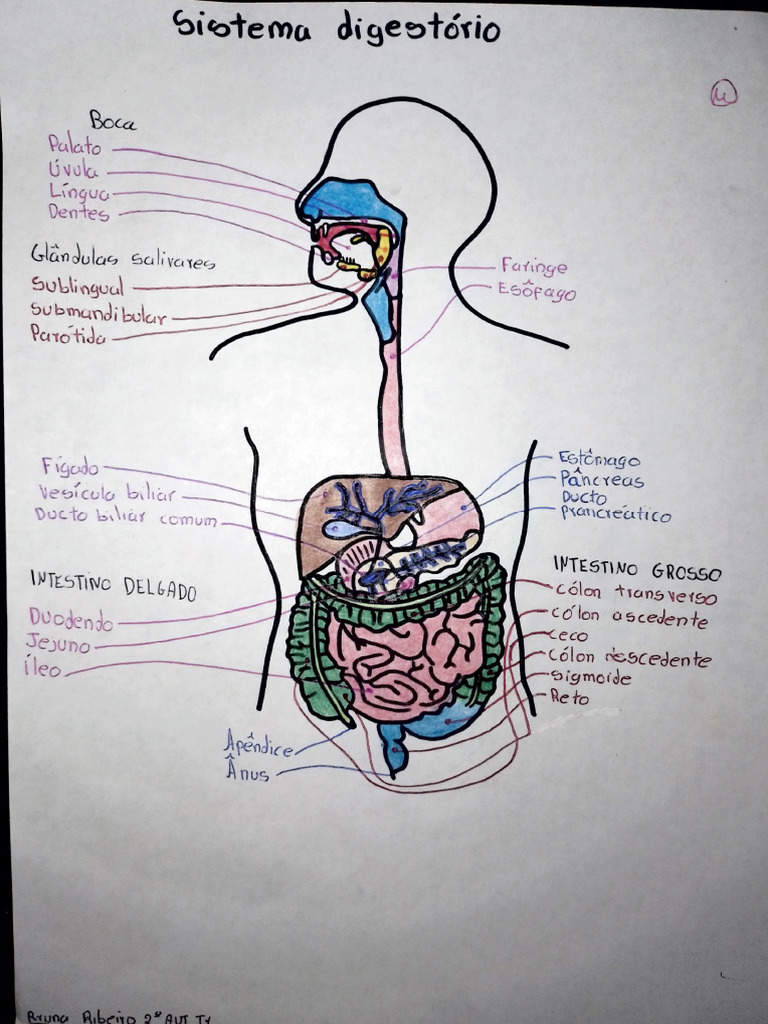 Sistema digestório
Boca
Palato
Úvula
Língua
Dentes
Glândulas salivares
Sublingual
Submandibular
Parótida
Faringe
Esôfago
Fígado
Vesícula biliar
Ducto biliar comum
Estômago
Pâncreas
Ducto
prancreático
INTESTINO DELGADO
Duodendo
Jejuno
Íleo
INTESTINO GROSSO
cólon transverso
cólon ascedente
ceco
cólon descedente
sigmoide
Reto
Apêndice
Ânus
Bruna Ribeiro 2º